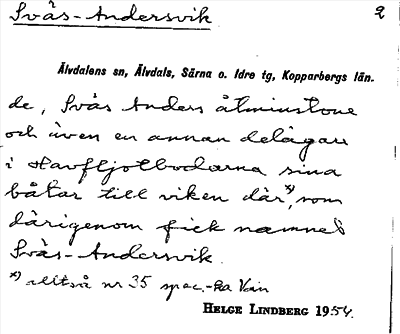 Svås-Andersvik 2
Älvdalens sn, Älvdals, Särna o. Idre tg, Kopparbergs län.
de, Svås Anders åtminstone
och även en annan delägare
i Havfljotbodarna sina
båtar till viken där,*) som
därigenom fick namnet
Svås-Andersvik.
*) alltså nr 35 spec.-ka Vän
HELGE LINDBERG 1954.